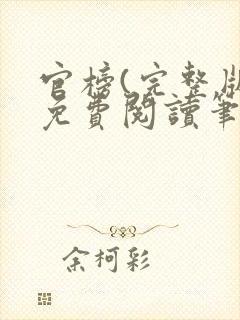 官榜(完整版
免費閱讀筆
余柯彩